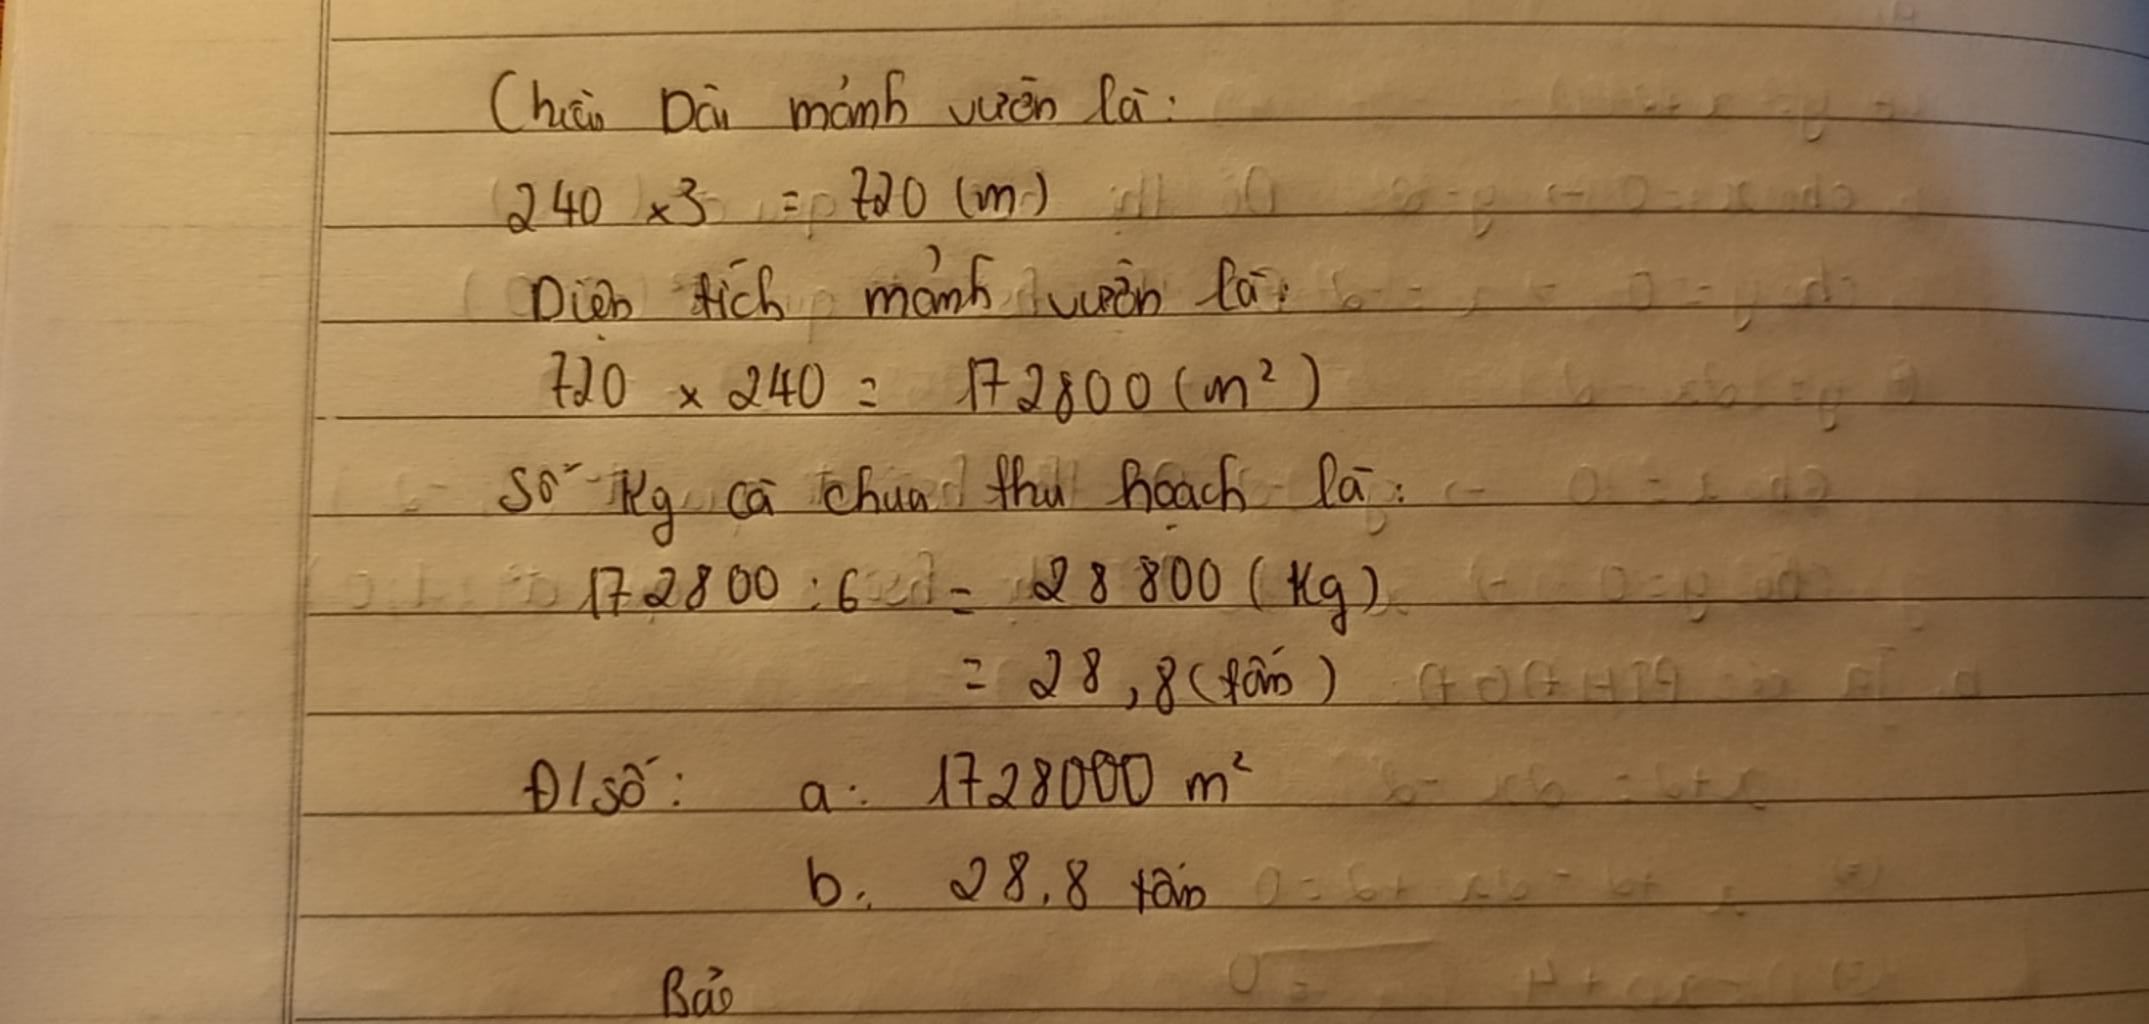 Chiều Dài mảnh vườn là:
240 × 3 = 720 (m)
Diện tích mảnh vườn là:
720 × 240 = 172800 (m²)
Số Kg cà chua thu hoạch là:
172800 : 6 = 28 800 (Kg)
= 28,8 (tấn)
Đ/số: a. 1728000 m²
b. 28,8 tấn
Bảo